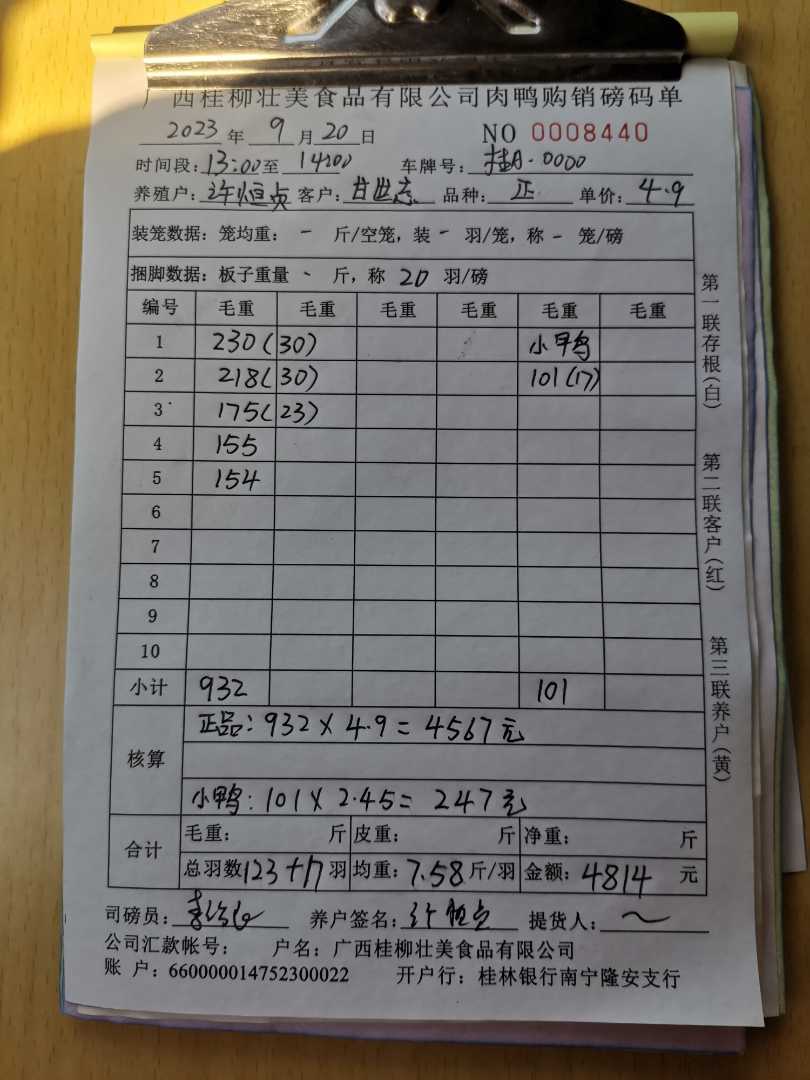 广西桂柳壮美食品有限公司肉鸭购销磅码单
2023年 9月20日 NO 0008440
时间段:13:00至 14:00 车牌号: 桂A·0000
养殖户: 许恒贞 客户: 甘世忠 品种: 正 单价: 4.9
装笼数据: 笼均重: - 斤/空笼, 装 - 羽/笼, 称 - 笼/磅
捆脚数据: 板子重量 - 斤, 称 20 羽/磅
编号 毛重 毛重 毛重 毛重 毛重 毛重
1 230(30) 小鸭
2 218(30) 101(17)
3 175(23)
4 155
5 154
6
7
8
9
10
小计 932 101
核算 正品: 932 × 4.9 = 4567元
小鸭: 101 × 2.45 = 247元
合计 毛重: 斤 皮重: 斤 净重: 斤
总羽数123+17羽 均重: 7.58斤/羽 金额: 4814 元
司磅员: 养户签名: 许恒贞 提货人: ~
公司汇款帐号: 户名: 广西桂柳壮美食品有限公司
账 户: 660000014752300022 开户行: 桂林银行南宁隆安支行
第一联存根(白)
第二联客户(红)
第三联养户(黄)